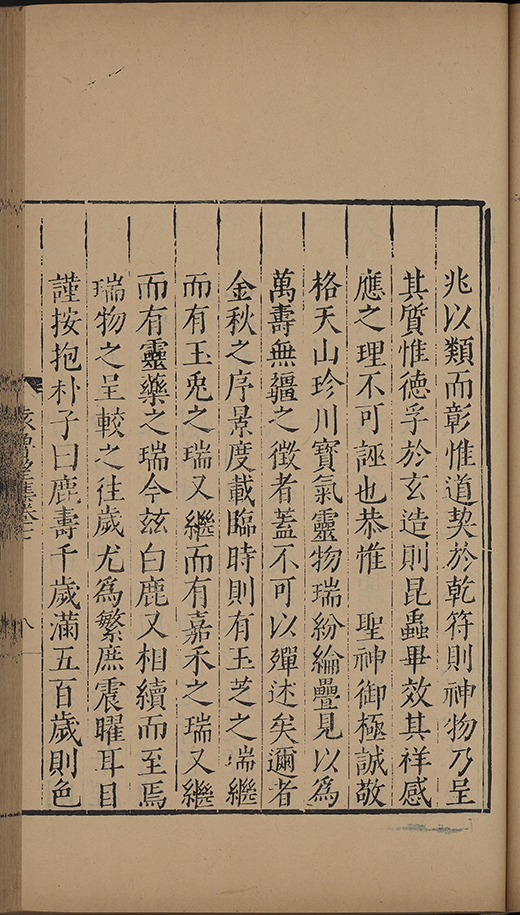 兆以類而彰惟道契於乾符則神物乃呈
其質惟德孚於玄造則昆蟲畢效其祥感
應之理不可誣也恭惟　聖神御極誠敬
格天山珍川寶氣靈物瑞紛綸疊見以爲
萬壽無疆之徴者蓋不可以殫述矣邇者
金秋之序景度載臨時則有玉芝之瑞繼
而有玉兎之瑞又繼而有嘉禾之瑞又繼
而有靈藥之瑞今玆白鹿又相續而至焉
瑞物之呈較之往歲尤爲繁庶震曜耳目
謹按抱朴子曰鹿壽千歲滿五百歲則色
八